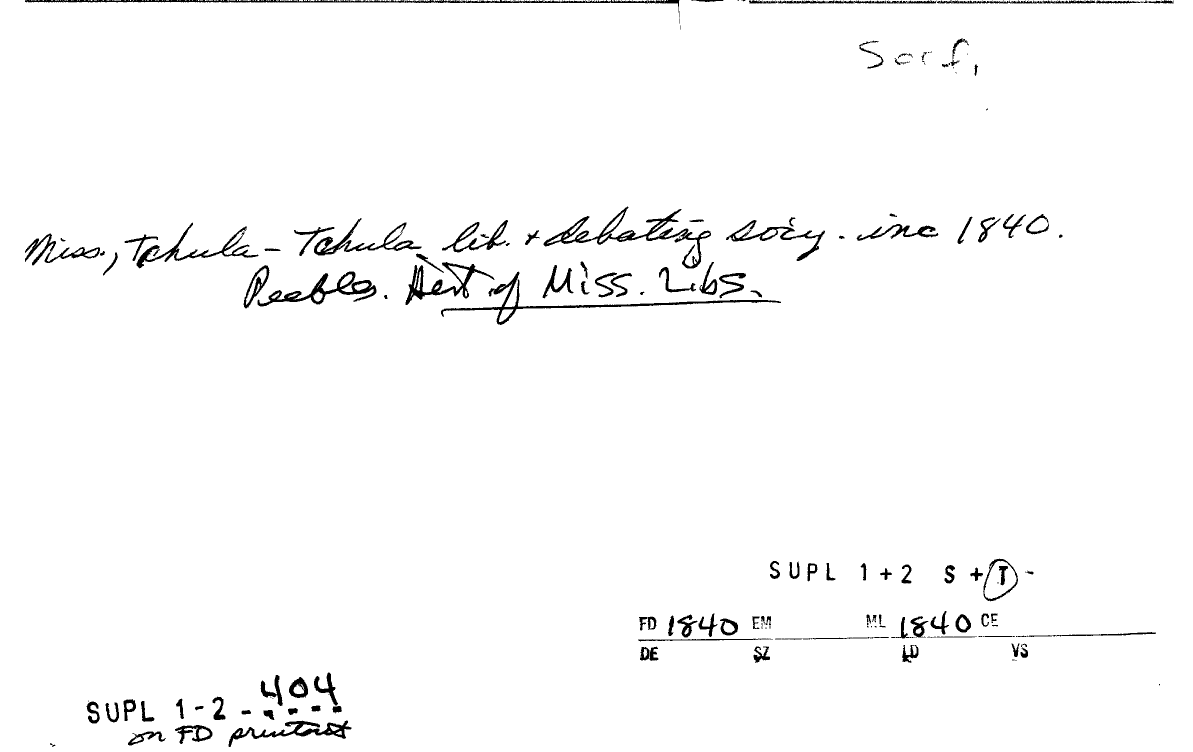 Socf,
Miss., Tchula - Tchula lib. + debating socy. inc 1840.
Peebles. Hist of Miss. Libs.
SUPL 1+2 S + T -
FD 1840 EM ML 1840 CE
DE SZ LD VS
SUPL 1-2 - 404
on FD printout